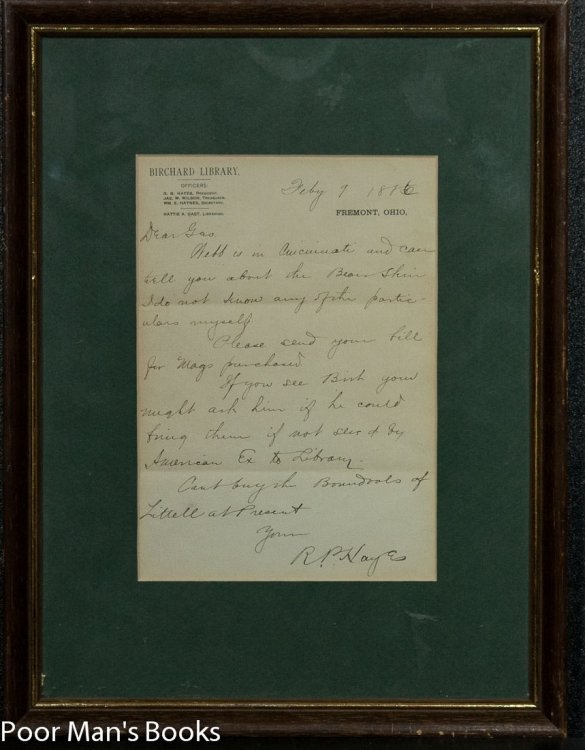 BIRCHARD LIBRARY.
OFFICERS:
R. B. HAYES, PRESIDENT.
JAS. W. WILSON, TREASURER.
WM. E. HAYNES, SECRETARY.
HATTIE A. GAST, LIBRARIAN.
Feby 9
FREMONT, OHIO,
Dear Geo
Webb is in Cincinnati and can
tell you about the Bear Skin
I do not know any of the partic-
ulars myself
Please send your bill
for Mags purchased
If you see Birch you
might ask him if he could
bring them if not send by
American Ex to Library.
Cant buy the Bound vols of
Littell at Present
Yours
R. P. Hayes
Poor Man's Books